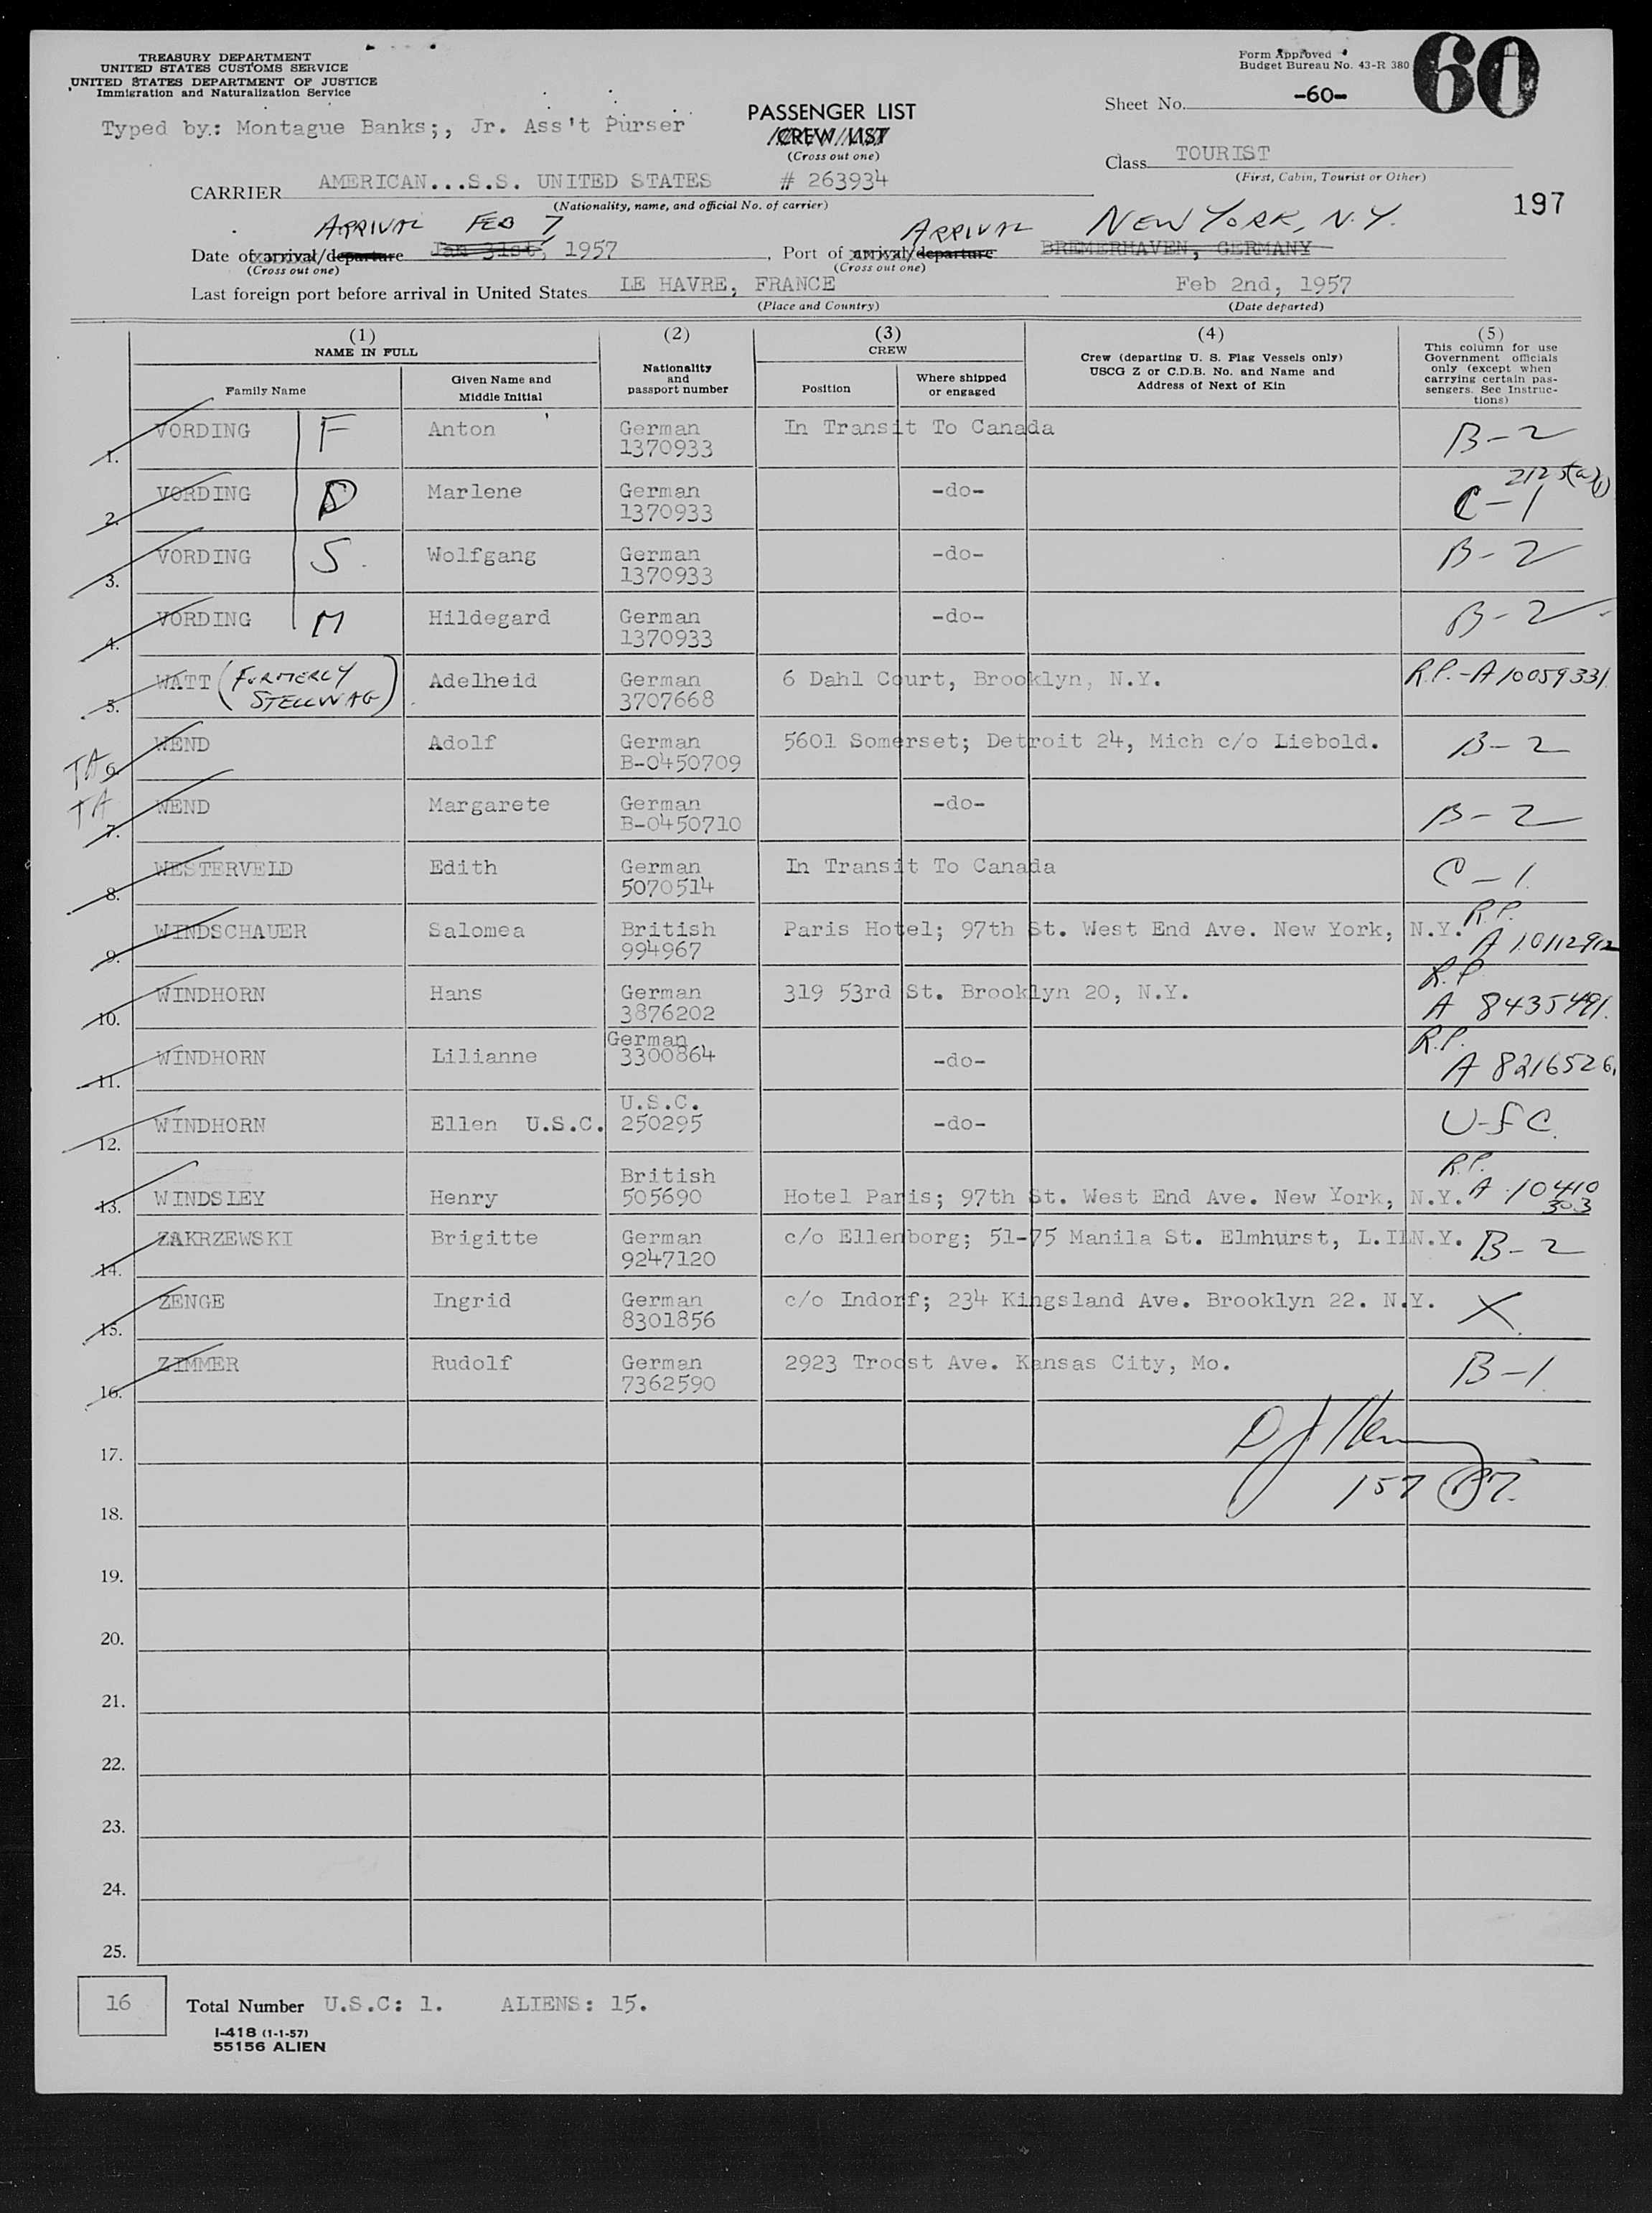 TREASURY DEPARTMENT
UNITED STATES CUSTOMS SERVICE
UNITED STATES DEPARTMENT OF JUSTICE
Immigration and Naturalization Service
Form Approved
Budget Bureau No. 43-R 380
60
Typed by: Montague Banks;, Jr. Ass't Purser
PASSENGER LIST
CREW LIST
(Cross out one)
Sheet No. -60-
Class TOURIST
(First, Cabin, Tourist or Other)
CARRIER AMERICAN...S.S. UNITED STATES # 263934
(Nationality, name, and official No. of carrier)
197
ARRIVAL FEB 7 ARRIVAL NEW YORK, N.Y.
Date of arrival/departure Jan 31st, 1957, Port of arrival/departure BREMERHAVEN, GERMANY
(Cross out one) (Cross out one)
Last foreign port before arrival in United States LE HAVRE, FRANCE Feb 2nd, 1957
(Place and Country) (Date departed)
(1) (2) (3) (4) (5)
NAME IN FULL
Family Name
Given Name and
Middle Initial
Nationality
and
passport number
CREW
Position
Where shipped
or engaged
Crew (departing U. S. Flag Vessels only)
USCG Z or C.D.B. No. and Name and
Address of Next of Kin
This column for use
Government officials
only (except when
carrying certain pas-
sengers. See Instruc-
tions)
1. VORDING F Anton German In Transit To Canada B-2
1370933
2. VORDING D Marlene German -do- C-1
1370933
3. VORDING S. Wolfgang German -do- B-2
1370933
4. VORDING M Hildegard German -do- B-2
1370933
5. WATT (FORMERLY STELLWAG) Adelheid German 6 Dahl Court, Brooklyn, N.Y. R.P.-A10059331
3707668
TA 6. WEND Adolf German 5601 Somerset; Detroit 24, Mich c/o Liebold. B-2
B-0450709
TA 7. WEND Margarete German -do- B-2
B-0450710
8. WESTERVELD Edith German In Transit To Canada C-1
5070514
9. WINDSCHAUER Salomea British Paris Hotel; 97th St. West End Ave. New York, N.Y. R.P. A 10112912
994967
10. WINDHORN Hans German 319 53rd St. Brooklyn 20, N.Y. R.P. A 8435491.
3876202
11. WINDHORN Lilianne German -do- R.P. A 8216526.
3300864
12. WINDHORN Ellen U.S.C. U.S.C. -do- U.S.C.
250295
13. WINDSLEY Henry British Hotel Paris; 97th St. West End Ave. New York, N.Y. R.P. A 10410 303
505690
14. ZAKRZEWSKI Brigitte German c/o Ellenborg; 51-75 Manila St. Elmhurst, L.I N.Y. B-2
9247120
15. ZENGE Ingrid German c/o Indorf; 234 Kingsland Ave. Brooklyn 22. N.Y. X
8301856
16. ZIMMER Rudolf German 2923 Troost Ave. Kansas City, Mo. B-1
7362590
17.
157
18.
19.
20.
21.
22.
23.
24.
25.
16 Total Number U.S.C: 1. ALIENS: 15.
I-418 (1-1-57)
55156 ALIEN